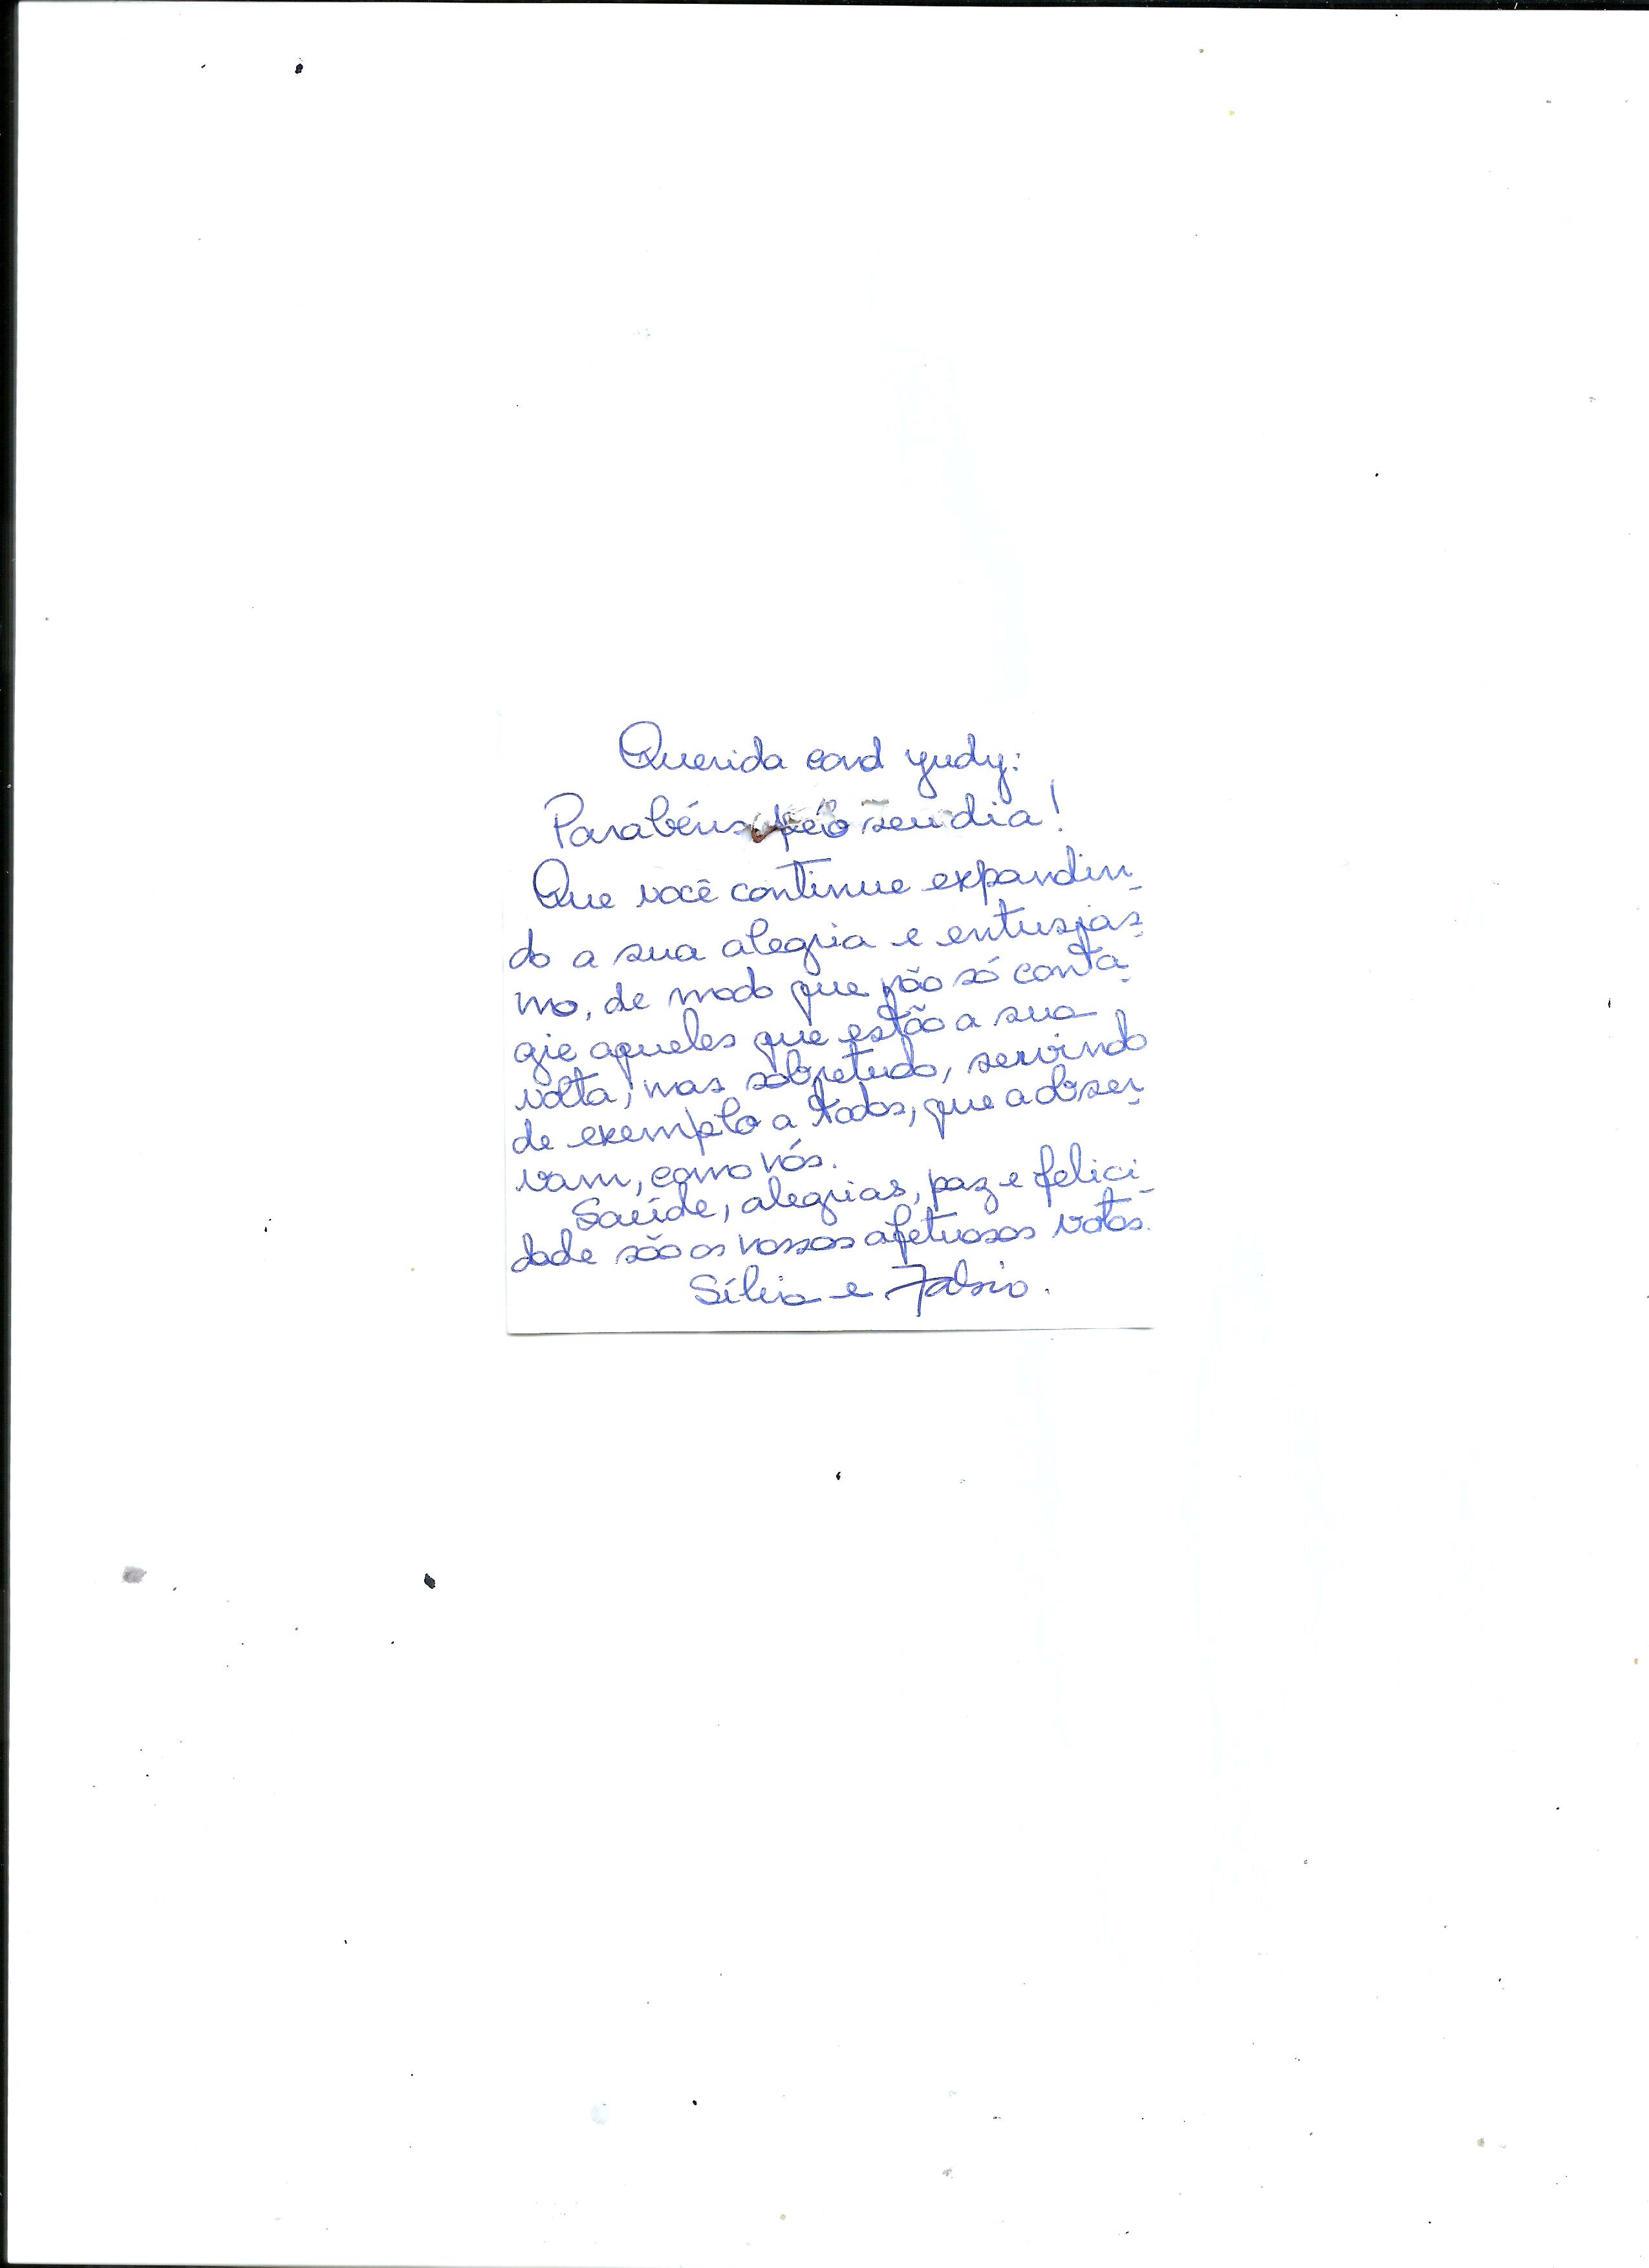 Querida cond Yudy:
Parabéns pelo seu dia!
Que você continue expandin-
do a sua alegria e entusias-
mo, de modo que não só conta-
gie aqueles que estão a sua
volta, mas sobretudo, servindo
de exemplo a todos, que a obser-
vam, como nós.
Saúde, alegrias, paz e felici-
dade são os nossos afetuosos votos.
Sílvia e Fabio.